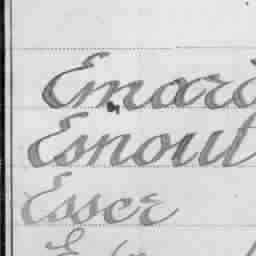 Emard
Esnoul
Esser